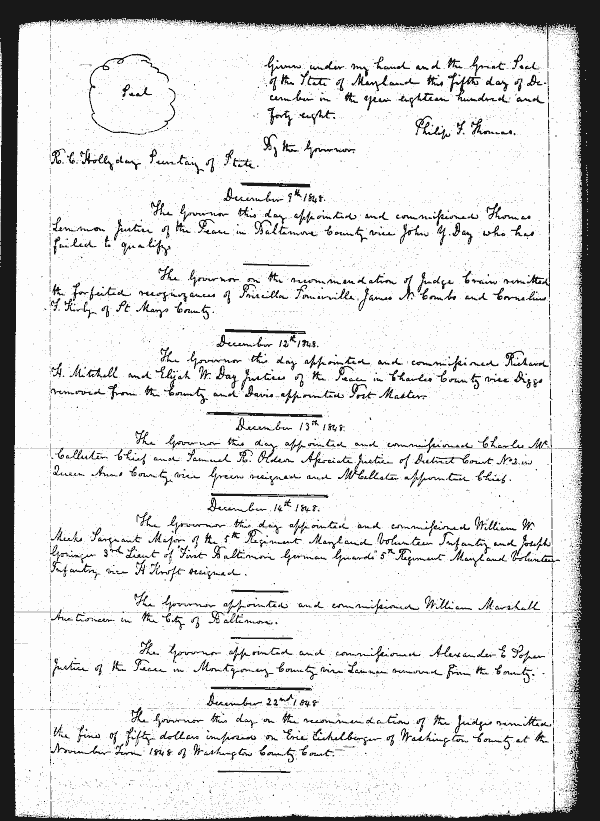 Given under my hand and the Great Seal
of the State of Maryland this fifth day of De-
cember in the year eighteen hundred and
forty eight.
Seal
Philip F. Thomas.
By the Governor.
R. C. Hollyday Secretary of State.
December 9th 1848.
The Governor this day appointed and commissioned Thomas
Lemmon Justice of the Peace in Baltimore County vice John Y. Day who has
failed to qualify
The Governor on the recommendation of Judge Crain remitted
the forfeited recognizances of Priscilla James N. Combs and Cornelius
of St Marys County.
December 12th 1848.
The Governor this day appointed and commissioned Richard
H. Mitchell and Elijah W. Day Justices of the Peace in Charles County vice Diggs
removed from the County and Davis appointed Post Master.
December 13th 1848.
The Governor this day appointed and commissioned Charles Mc
Callister Chief and Samuel R. Oldson Associate Justice of District Court No 2 in
Queen Anns County vice Green resigned and McCallister appointed Chief.
December 14th 1848.
The Governor this day appointed and commissioned William W.
Meeks Sargeant Major of the 5th Regiment Maryland Volunteer Infantry and Joseph
3rd Lieut of "First Baltimore German Guards" 5th Regiment Maryland Volunteer
Infantry vice H resigned.
The Governor appointed and commissioned William Marshall
Auctioneer in the City of Baltimore.
The Governor appointed and commissioned Alexander E Soper
Justice of the Peace in Montgomery County vice removed from the County.
December 22nd 1848
The Governor this day on the recommendation of the Judges remitted
the fine of fifty dollars imposed on Eichelberger of Washington County at the
November Term 1848 of Washington County Court.